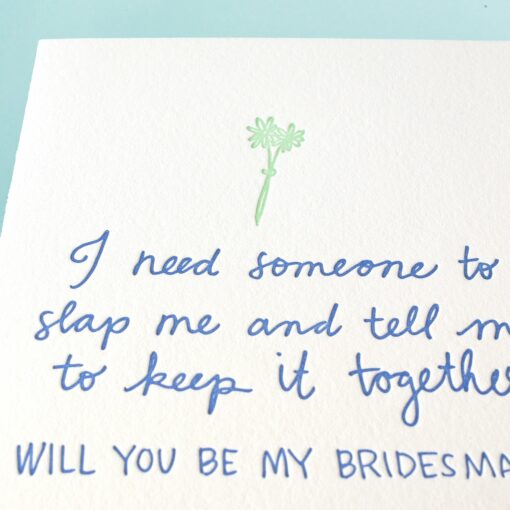 I need someone to
slap me and tell m
to keep it togethe
WILL YOU BE MY BRIDESMA